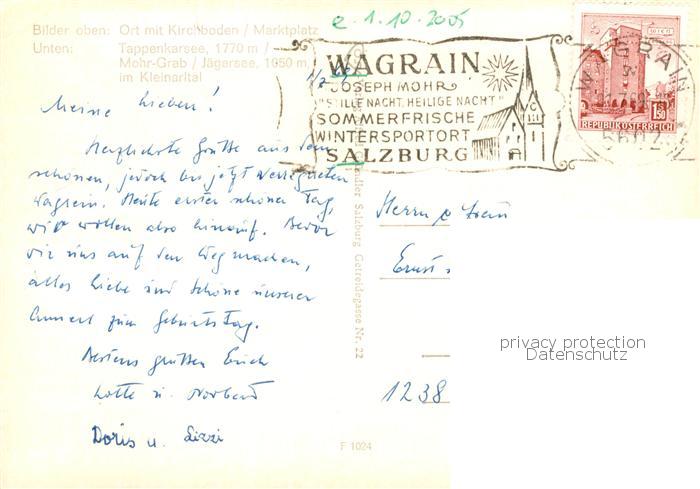 e. 1.10.2005
Bilder oben: Ort mit Kirchboden / Marktplatz
Unten: Tappenkarsee, 1770 m /
Mohr-Grab / Jägersee, 1050 m,
im Kleinarltal
WAGRAIN
JOSEPH MOHR
"STILLE NACHT, HEILIGE NACHT"
SOMMERFRISCHE
WINTERSPORTORT
SALZBURG
WAGRAIN
5602
1.50
REPUBLIK ÖSTERREICH
Meine Lieben!
Herzlichste Grüße aus dem
schönen, jedoch bis jetzt verregneten
Wagrain. Heute erster schöner Tag,
wir wollen also hinauf. Bevor
wir uns auf den Weg machen,
alles Liebe und Schöne unserer
Annerl zum Geburtstag.
Bestens grüßen Euch
Lotte u. Norbert
Doris u. Sizzi
Herrn u Frau
Ernst
1238
Salzburg Getreidegasse Nr. 22
F 1024
privacy protection
Datenschutz